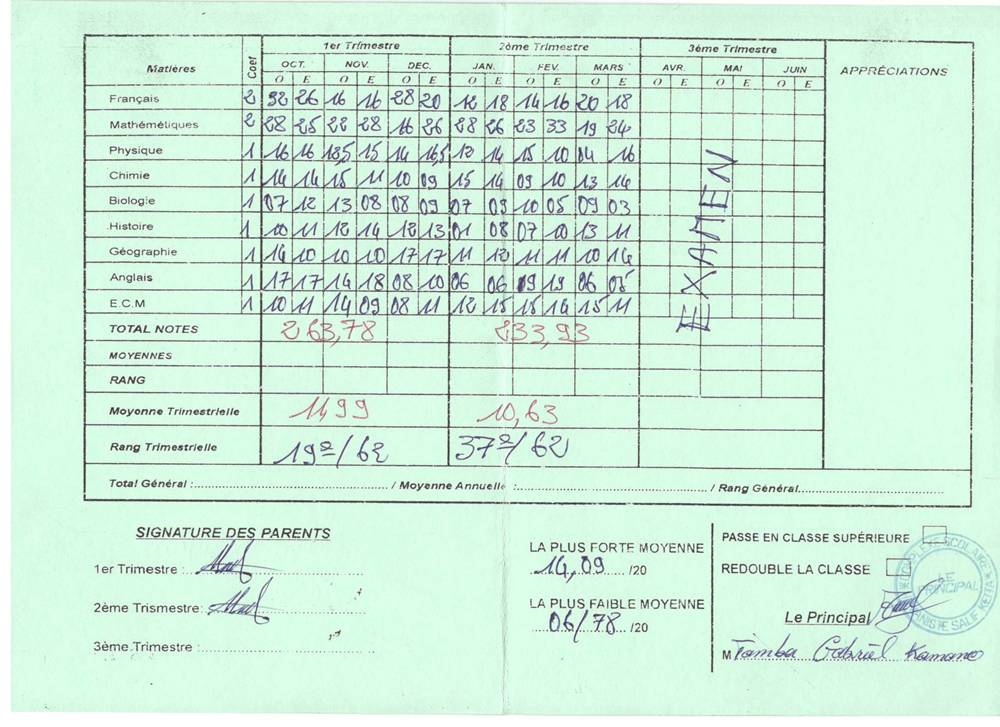 1er Trimestre 2ème Trimestre 3éme Trimestre
Matières Coef OCT. NOV. DEC. JAN. FEV. MARS AVR. MAI JUIN APPRÉCIATIONS
O E O E O E O E O E O E O E O E O E
Français 2 32 26 16 16 28 20 12 18 14 16 20 18
Mathémétiques 2 28 25 22 28 16 26 28 26 23 33 19 24
Physique 1 16 16 18,5 15 14 16,5 12 14 15 10 04 16
Chimie 1 14 14 15 11 10 09 15 14 09 10 13 14
Biologie 1 07 12 13 08 08 09 07 09 10 05 09 03
Histoire 1 10 11 12 14 12 13 01 08 07 10 13 11
Géographie 1 14 10 10 10 17 17 11 12 11 11 10 14
Anglais 1 17 17 14 18 08 10 06 06 09 19 06 05
E.C.M 1 10 11 14 09 08 11 12 15 15 14 15 11
EXAMEN
TOTAL NOTES 263,78 233,93
MOYENNES
RANG
Moyonne Trimestrielle 11,99 10,63
Rang Trimestrielle 19e/62 37e/62
Total Général : / Moyenne Annuelle : / Rang Général
SIGNATURE DES PARENTS
1er Trimestre :
2ème Trismestre:
3ème Trimestre :
LA PLUS FORTE MOYENNE
14,09 /20
LA PLUS FAIBLE MOYENNE
06/78 /20
PASSE EN CLASSE SUPÉRIEURE
REDOUBLE LA CLASSE
COMPLEXE SCOLAIRE
LE PRINCIPAL
MINISTE SALIF KEITA
Le Principal
M Tamba Gabriel Kamano